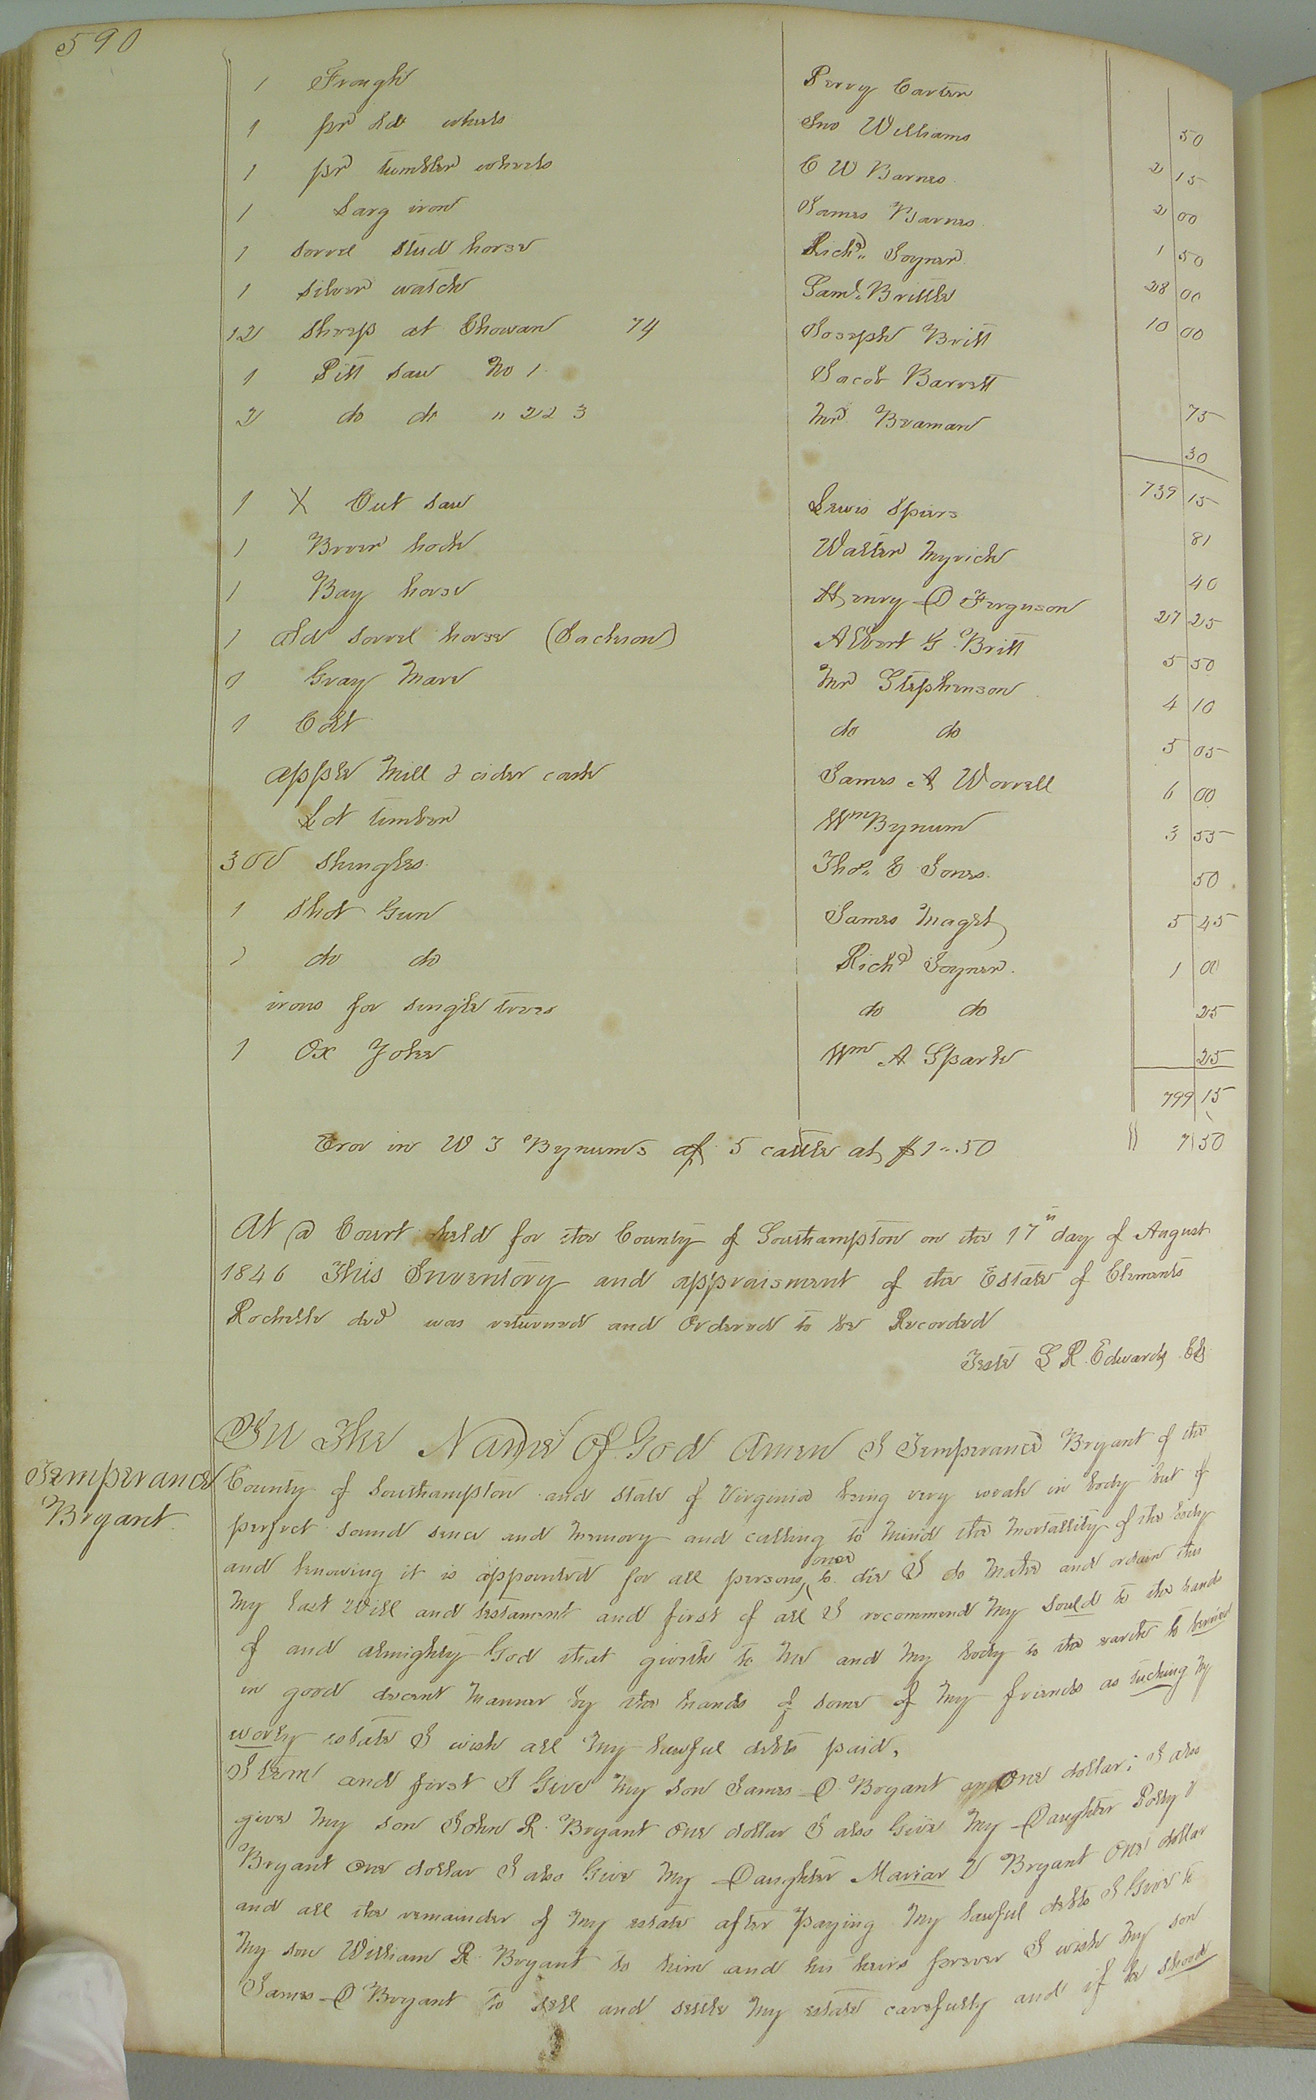 590
1 Frough Perry Carter 50
1 pr old wheels Jno Williams 2 15
1 pr tumbler wheels C W Barnes 2 00
1 Sarg iron James Barnes 1 50
1 sorrel stud horse Richd Joyner 28 00
1 silver watch Saml Brittle 10 00
12 Sheep at Chowan 74 Joseph Britt
1 Pitt Saw No 1 Jacob Barrett 75
2 do do " 2 & 3 Mr Beaman 30
739 15
1 X Cut saw Lewis Spiers 81
1 Brier hook Walter Myrick 40
1 Bay horse Henry D Ferguson 27 25
1 old sorrel horse (Jackson) Albert G Britt 5 50
1 Gray Mare Mr Stephenson 4 10
1 Colt do do 5 05
apple Mill & cider cask James A Worrell 6 00
Lot timber Wm Bynum 3 55
300 Shingles Thos E Jones 50
1 Shot Gun James Maget 5 45
1 do do Richd Joyner 1 00
irons for single trees do do 25
1 Ox Yoke Wm A Spark 25
799 15
Eror in W J Bynums of 5 cattle at $1.50 " 7 50
At a Court held for the County of Southampton on the 17th day of August
1846 This Inventory and appraisment of the Estate of Clements
Rochelle decd was returned and Ordered to be Recorded
Teste L R Edwards Clk
Temperance
Bryant
In The Name Of God Amen I Temperance Bryant of the
County of Southampton and state of Virginia being very weak in body but of
perfect sound sence and memory and calling to mind the mortallity of the body
and knowing it is appointed for all persons once to die I do make and ordain this
my last Will and testament and first of all I recommend my sould to the hands
of and almighty God that giveth to me and my body to the earth to buried
in good decent manner by the hands of some of my friends as tuching my
worly estate I wish all my lawful debts paid,
Item and first I Give my son James D Bryant one dollar; I also
give my son John R Bryant one dollar I also Give my Daughter Polly V
Bryant one dollar I also Give my Daughter Mariar V Bryant one dollar
and all the remainder of my estate after paying my lawful debts I Give to
my son William R Bryant to him and his heirs forever I wish my son
James D Bryant to sell and settle my estate carefully and if he shood